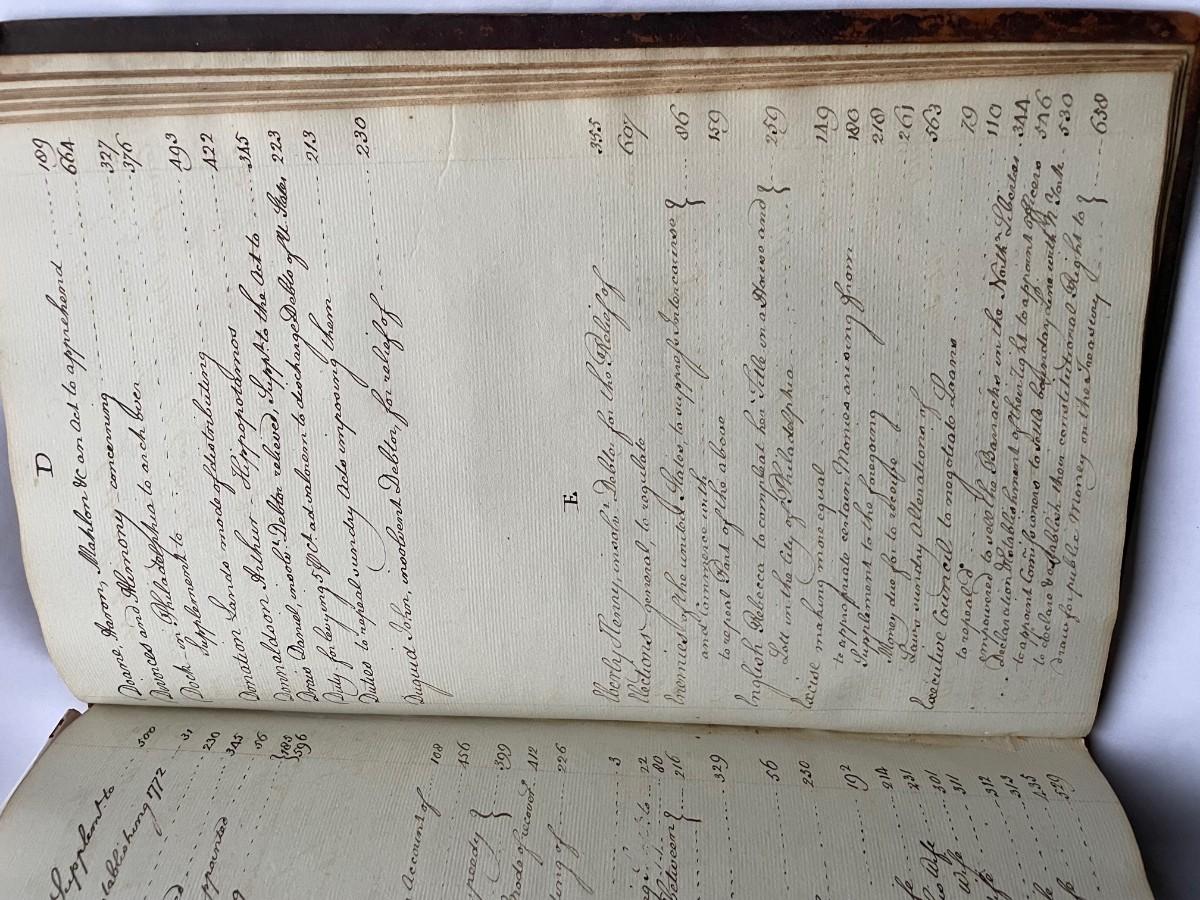 Supplement to
ablishing 1772 500
31
ppointed 230
345
76
185
596
Accounts of 108
456
peedy } 399
mode of recover.g 412
ling of 226
3
22
80
between } 216
329
56
230
192
214
231
Wife 301
Wife 311
312
313
435
529
D
Doane, Aaron, Mahlon &C an Act to apprehend 109
664
Divorces and Alimony concerning 327
Dock-in Philadelphia to arch over 376
Supplement to 493
Donation Lands mode of distributing 422
Donaldson Arthur - Hippopotamos 345
Donnaldson, insolv.t Debtor relieved, Suppt. to the Act to 223
Drais Daniel, insolv.t Debtor relieved, to discharge Debts of U. States 213
Duty for levying 5 P Ct. ad valorem
Duties to repeal sundry Acts imposing them 230
Duguid John, insolvent Debtor, for relief of
E.
Eberly Henry, insolv.t Debtor for the Relief of 355
Elections general, to regulate 607
Enemies of the united States to suppress Intercourse
and Commerce with } 86
to repeal Part of the above 159
English Rebecca to compleat her Title in a House and
Lott in the City of Philadelphia } 259
Excise making more equal 149
to appropriate certain Monies arising from 183
Supplement to the foregoing 210
Money due for to recover 261
Laws sundry Alterations of 563
Executive Council to negotiate Loans 79
to repeal do. 110
empowered to sell the Barracks in the North.n Liberties 344
Declaration & Establishment of their right to appoint officers 346
to appoint Commissioners to settle boundary Line with N. York 530
to declare & establish their constitutional Right to
draw for public Money on the Treasury } 638